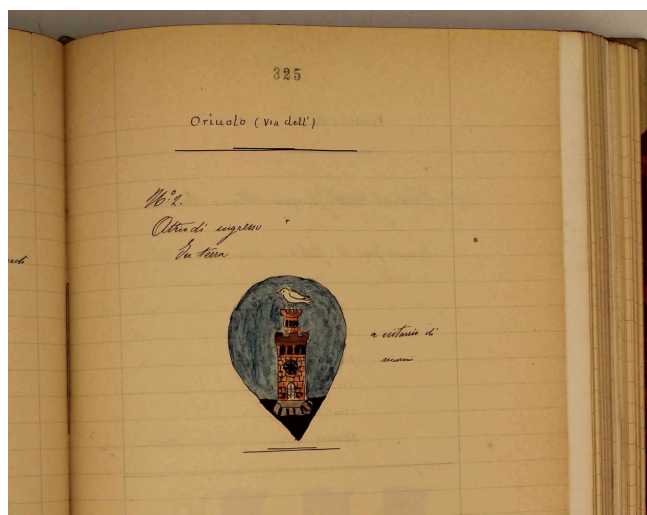 325
Oriuolo (Via dell')
No. 2.
Atrio di ingresso
In terra
a intarsio di
marmi